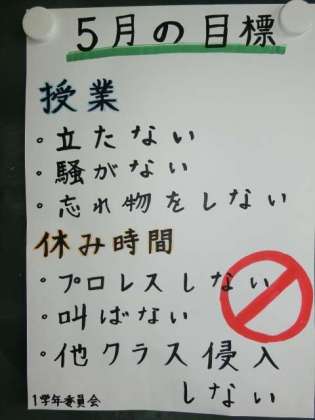 5月の目標
授業
・立たない
・騒がない
・忘れ物をしない
休み時間
・プロレスしない
・叫ばない
・他クラス侵入
しない
1学年委員会